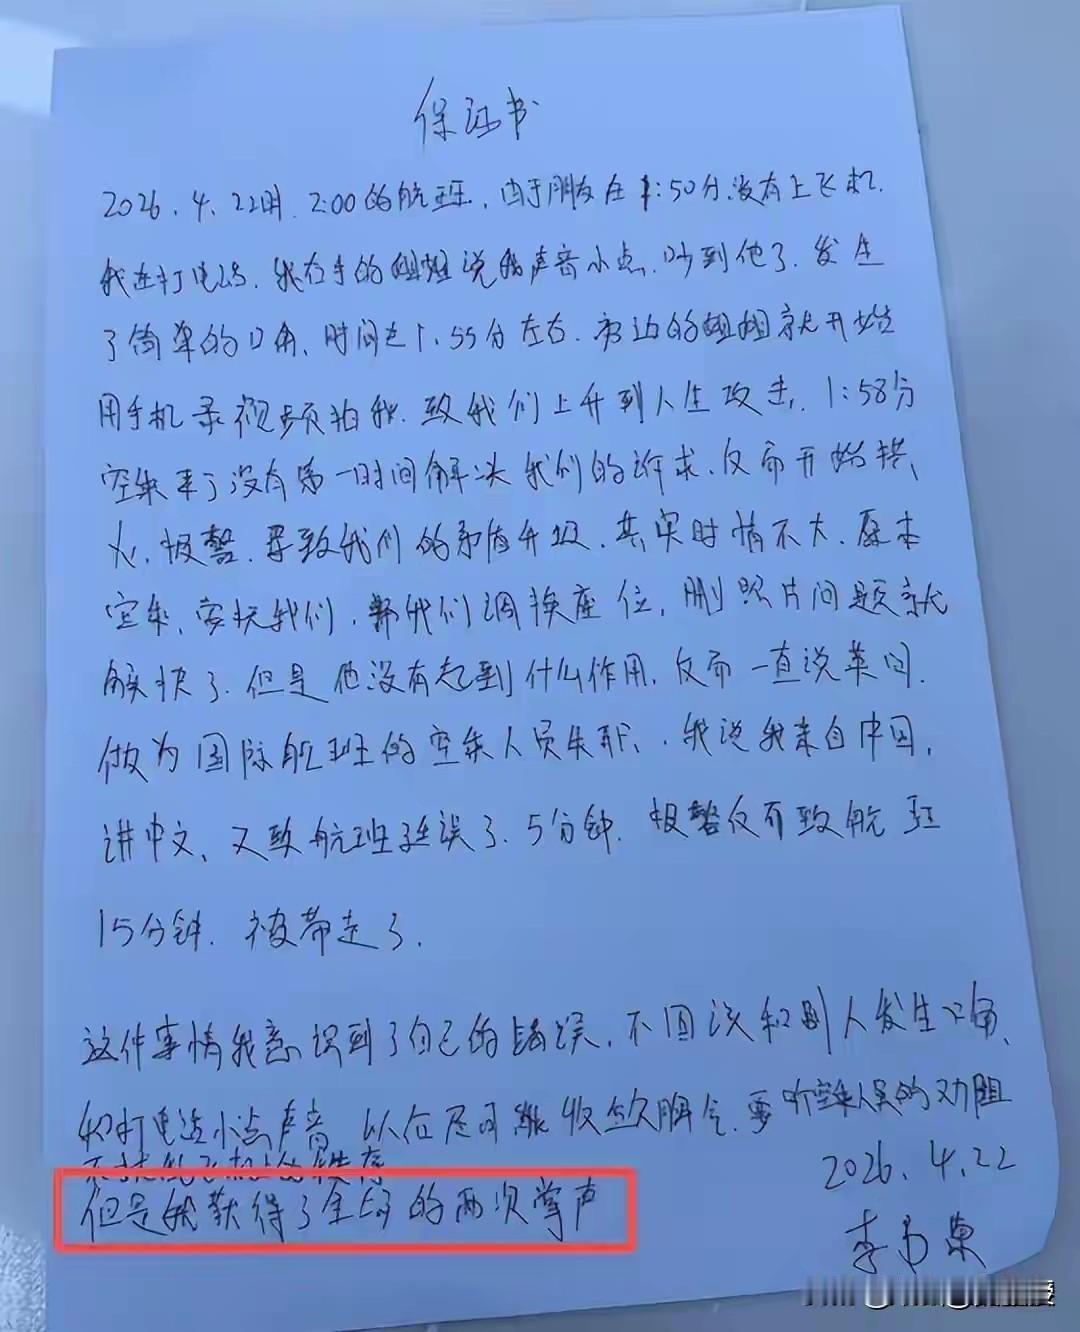 保证书
2026.4.22日.2:00的航班,由于朋友在1:50分没有上飞机.
我在打电话.我右手的姐姐说我声音小点.吵到他了.发生
了简单的口角、时间是1.55分左右.旁边的姐姐就开始
用手机录视频拍我.致我们上升到人生攻击.1:58分
空乘来了没有第一时间解决我们的诉求.反而开始拱
火.报警.导致我们的矛盾升级.其实时情不大.原本
空乘,安抚我们,帮我们调换座位,删照片问题就
解快了.但是他没有起到什么作用,反而一直说英国.
做为国际航班的空乘人员失职,我说我来自中国,
讲中文、又致航班延误了.5分钟.报警反而致航班
15分钟.被带走了.
这件事情我意识到了自己的错误,不因该和别人发生口角、
打电话小点声音.以后尽可能收敛脾气.要听空乘人员的劝阻
2026.4.22
但是我获得了全场的两次掌声